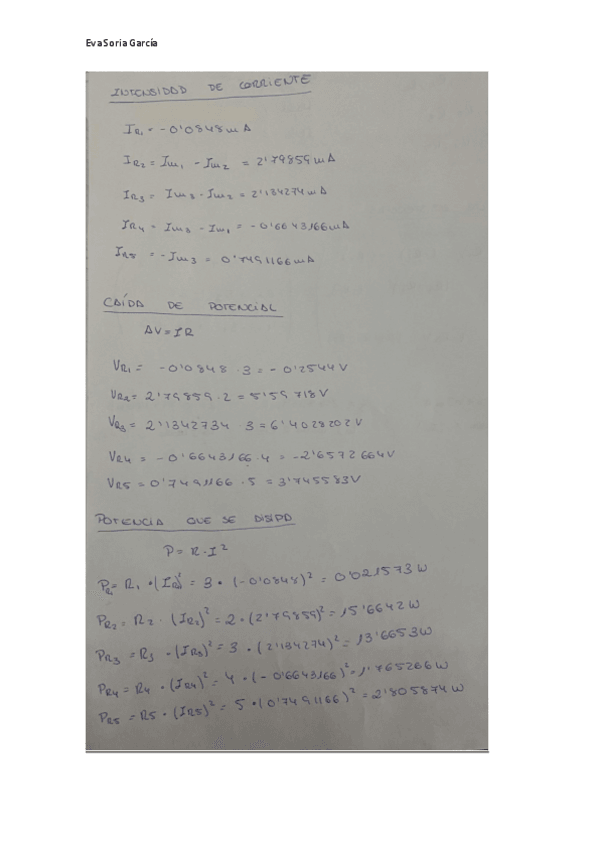 Eva Soria García
INTENSIDAD DE CORRIENTE
IR1 = -0'0848 mA
IR2 = Im1 - Im2 = 2'79859 mA
IR3 = Im3 - Im2 = 2'134274 mA
IR4 = Im3 - Im1 = -0'6643166 mA
IR5 = -Im3 = 0'7491166 mA
CAÍDA DE POTENCIAL
ΔV = IR
VR1 = -0'0848 · 3 = -0'2544 V
VR2 = 2'79859 · 2 = 5'59718 V
VR3 = 2'1342734 · 3 = 6'4028202 V
VR4 = -0'6643166 · 4 = -2'6572664 V
VR5 = 0'7491166 · 5 = 3'745583 V
POTENCIA QUE SE DISIPA
P = R · I²
PR1 = R1 · (IR1)² = 3 · (-0'0848)² = 0'021573 W
PR2 = R2 · (IR2)² = 2 · (2'79859)² = 15'6642 W
PR3 = R3 · (IR3)² = 3 · (2'134274)² = 13'6653 W
PR4 = R4 · (IR4)² = 4 · (-0'6643166)² = 1'765266 W
PR5 = R5 · (IR5)² = 5 · (0'7491166)² = 2'805874 W